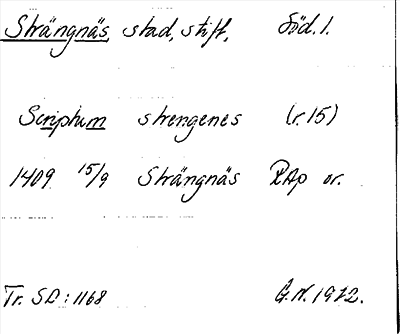 Strängnäs, stad, stift, Söd. l.
Scriptum strengenes (r. 15)
1409 15/9 Strängnäs RAp or.
Tr. SD: 1168 G.N. 1972.